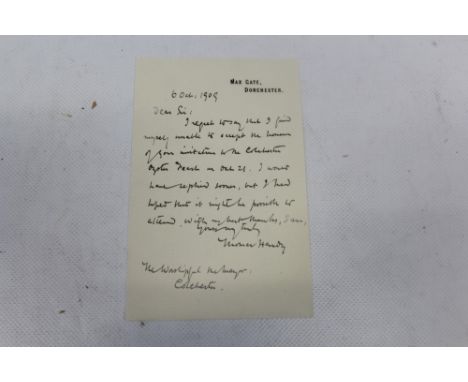 MAX GATE,
DORCHESTER.
6 Oct: 1909
Dear Sir:
I regret to say that I find
myself unable to accept the honour
of your invitation to the Colchester
Oyster Feast on Oct 21. I would
have replied sooner, but I had
hoped that it might be possible to
attend. With my best thanks, I am,
Yours very truly
Thomas Hardy
The Worshipful the Mayor:
Colchester.